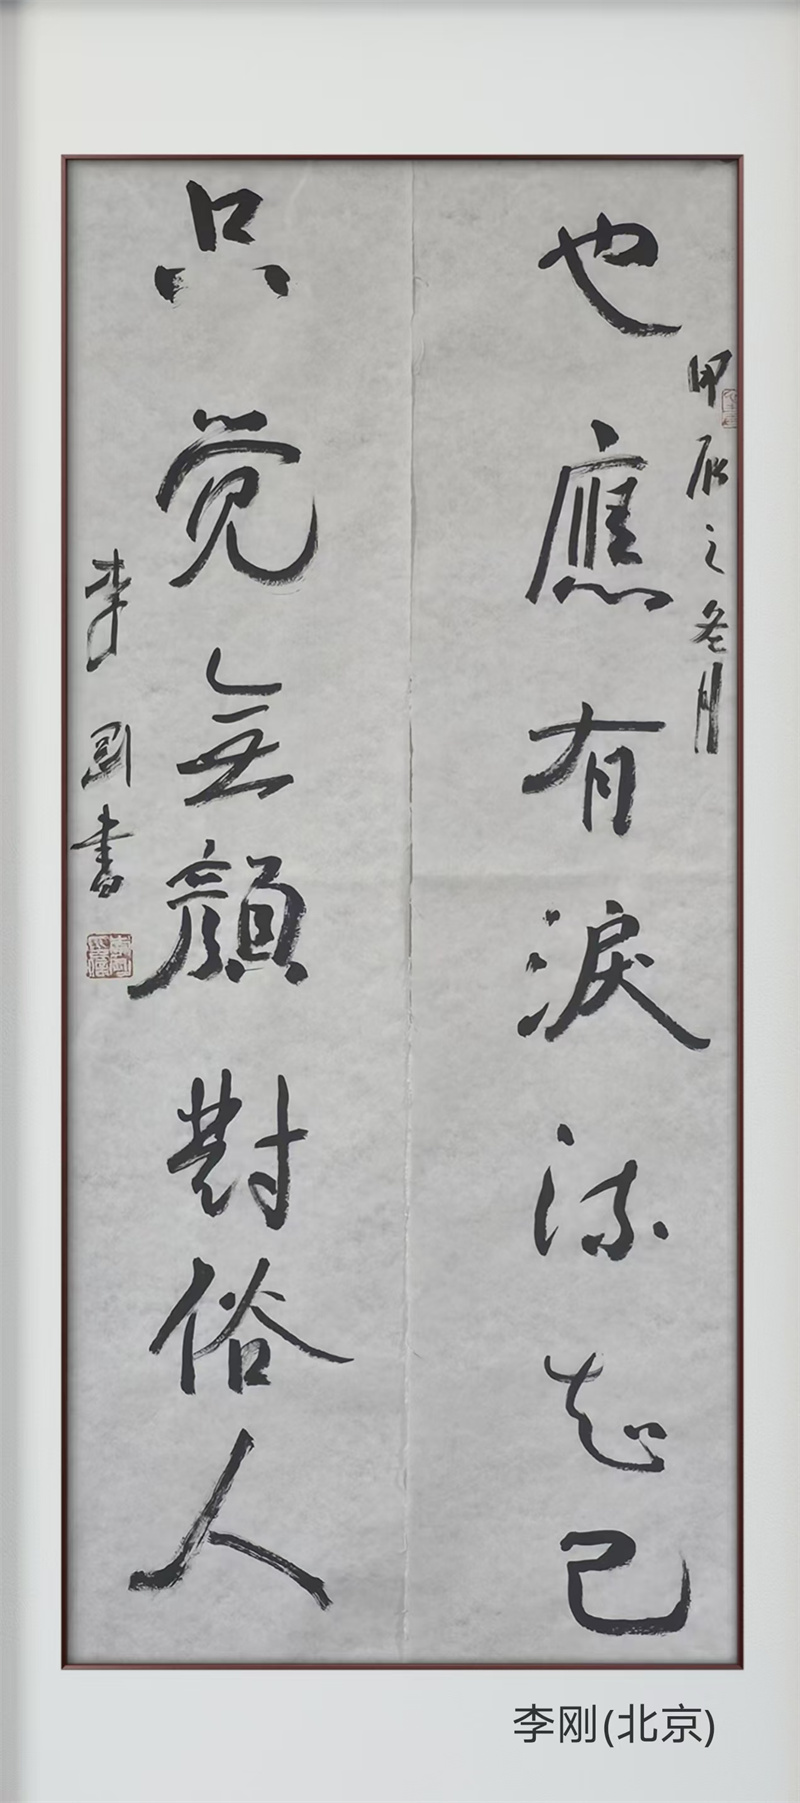 甲辰之冬月
也應有淚流知己
只觉無顔對俗人
李剛書
李刚(北京)